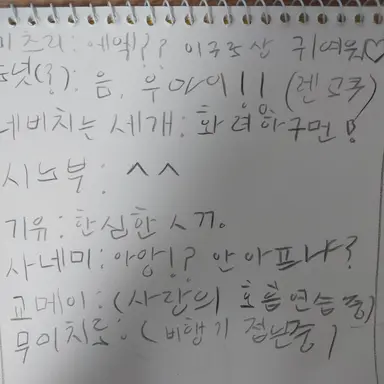 미츠리: 에엑?? 이구로상 귀여워♡
넷(?): 음, 우마이!! (렌고쿠)
네비치는 세개: 화려하구먼!
시노부: ^^
기유: 한심한 ㅅㄲ.
사네미: 아앙!? 안 아프냐?
교메이: (사람의 호흡 연습 중)
무이치로: (비행기 접는중)